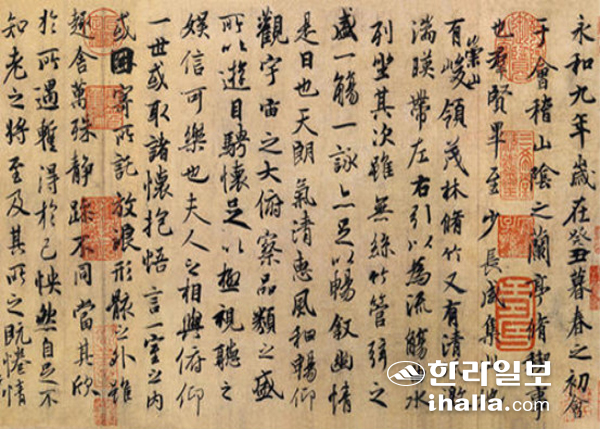 永和九年歲在癸丑暮春之初會
于會稽山陰之蘭亭脩稧事
也羣賢畢至少長咸集此
崇山
有峻領茂林脩竹又有清流激
湍暎帶左右引以為流觴曲水
列坐其次雖無絲竹管弦之
盛一觴一詠亦足以暢敘幽情
是日也天朗氣清惠風和暢仰
觀宇宙之大俯察品類之盛
所以遊目騁懷足以極視聽之
娛信可樂也夫人之相與俯仰
一世或取諸懷抱悟言一室之內
或因寄所託放浪形骸之外雖
趣舍萬殊靜躁不同當其欣
於所遇暫得於己怏然自足不
知老之將至及其所之既惓情
한라일보
ihalla.com